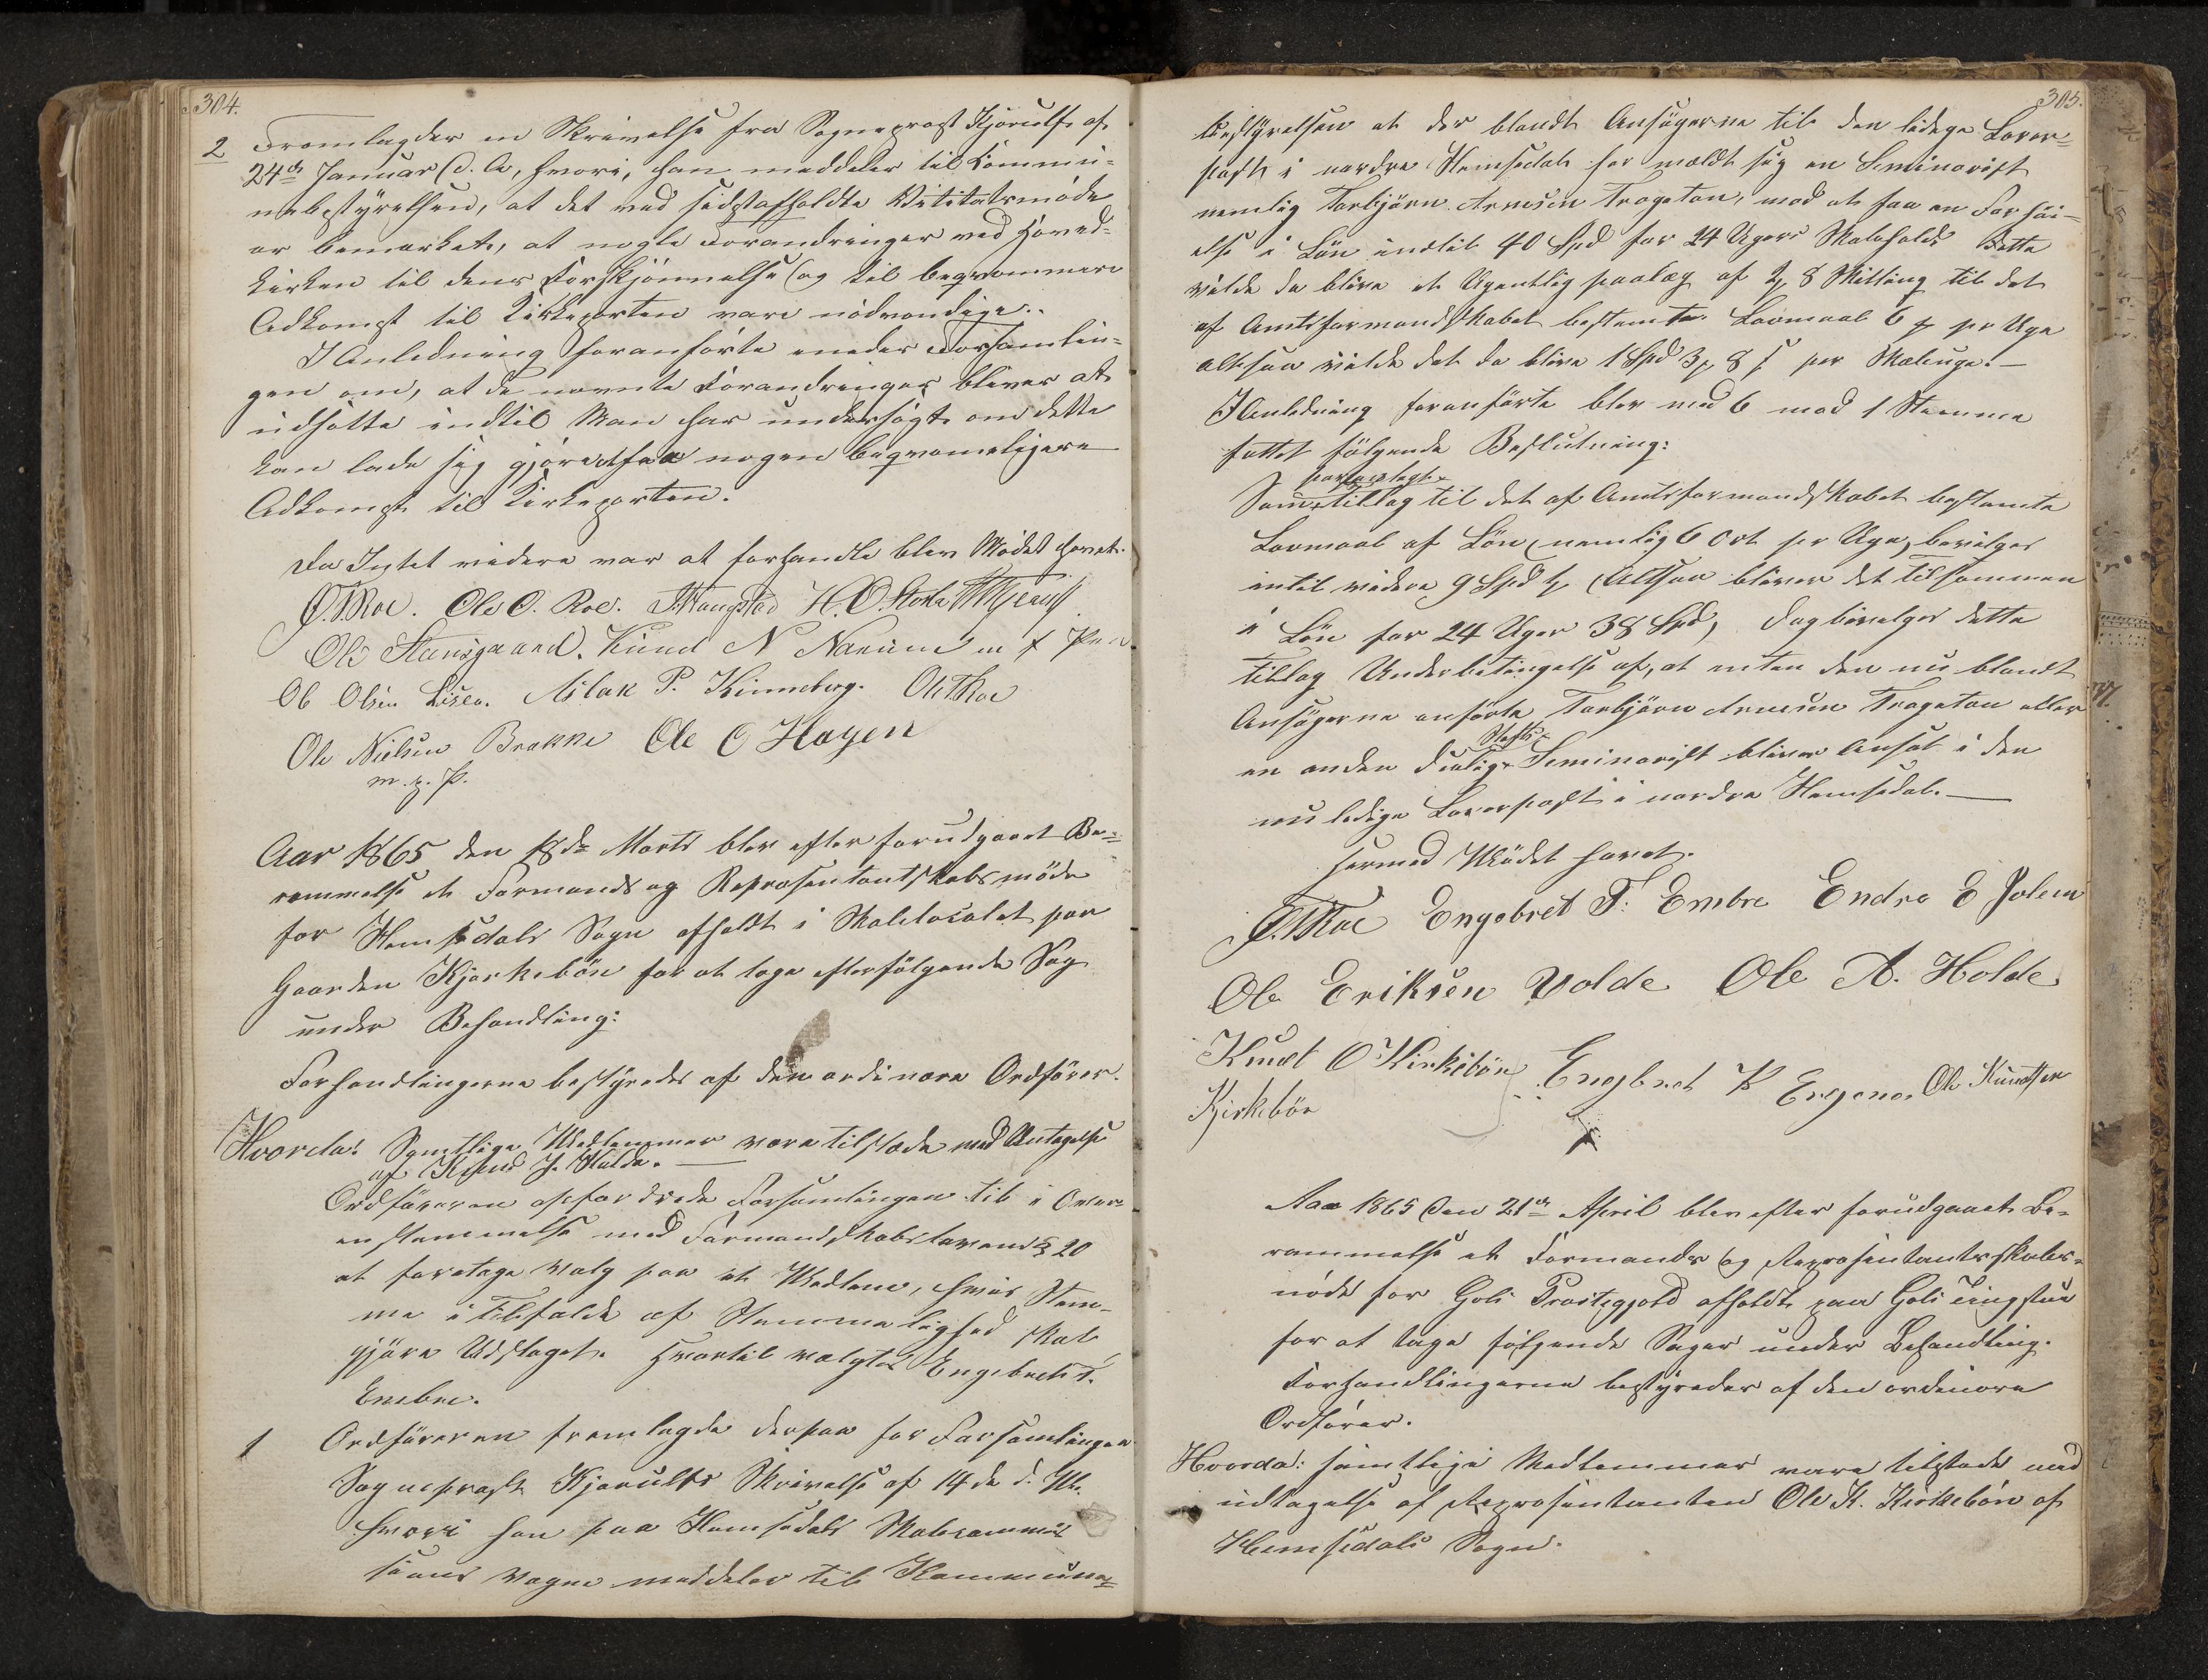 304.
2 Fremlagdes en Skrivelse fra Sogneprest Kjerulf af
24de Januar d. A, hvori, han meddeler til Kommu-
nebestyrelsen, at det ved sidstafholdte Visitatsmöde
er bemærket, at nogle Forandringer ved Hoved-
kirken til dens Forskjönnelse og til beqvemmere
Adkomst til Kirkeporten vare nödvendige.
I Anledning foranförte eneder Forsamlin-
gen om, at de nævnte Forandringer bliver at
udsætte indtil Man har undersögt om dette
kan lade sig gjöre at faa nogen beqvemeligere
Adkomst til Kirkeporten.
Da Intet videre var at forhandle blev Mödet hævet.
O.T. Roe. Ole O. Roe. H. O. Kjerulf
Ole Steinsgaard. Knud N Narum m f Pen
Ole Olsen Aslak P. Kinneberg. Ole T Roe
Ole Nielsen Brakke Ole O Hagen
m. p. P.
Aar 1865 den 18de Marts blev efter forudgaaet Be-
rammelse et Formands og Repræsentantskabsmöde
for Hemsedals Sogn afholdt i Skolelocalet paa
Gaarden Kjerkebön for at tage efterfölgende Sag
under Behandling:
Forhandlingerne bestyredes af den ordinære Ordförer.
Hvorda: Samtlige Medlemmer vare tilstede med Undtagelse
af Knud J. Hulde.
Ordföreren opfordrede Forsamlingen til i Over-
enstemmelse med Formandskabslovens § 20
at foretage Valg paa et Medlem, hvis Stem-
me i Tilfælde af Stemmelighed skal
gjöre Udslaget. Hvortil valgtes Engebret T.
Embre.
1 Ordföreren fremlagde derpaa for Forsamlingen
Sogneprest Kjerulfs Skrivelse af 14de d. M.
hvori han paa Hemsedals Skolecommis
sions Vegne meddeler til Kommune-
305.
bestyrelsen at der blandt Ansögerne til den ledige Lærer-
post i nordre Hemsedal har meldt sig en Seminarist
nemlig Torbjörn Arnesen Trageton, mod at faa en Forhöi-
else i Lön indtil 40 Spd for 24 Ugers Skolehold. Dette
vilde da blive et Ugentlig paalæg af 8 Skilling til det
af Amtsformandskabet bestemte Lavmaal 6 pr Uge
altsaa vilde det da blive 1 Spd 3 8 ß per Skoleuge.
I Anledning foranförte blev med 6 mod 1 Stemme
fattet fölgende Beslutning:
Som Tillæg til det af Amtsformandskabet bestemte
Lavmaal af Lön, nemlig 6 Ort pr Uge, bevilges
intil videre 9 Spd (Altsaa bliver det tilsammen
i Lön for 24 Uger 38 Spd), dog bevilges dette
Tillæg Underbetingelse af, at enten den nu blandt
Ansögerne anförte Torbjörn Arnesen Trageton eller
en anden duelig Seminarist bliver Ansat i den
nu ledige Lærerpost i nordre Hemsedal.
Hermed Mödet hævet.
O. T. Roe Engebret T. Embre Endre E Jolem
Ole Eriksen Volde Ole A. Holde
Knud O Kirkebön Engbret K Ergene. Ole Knudsen
Kirkebön
Aar 1865 Den 21de April blev efter forudgaaet Be-
rammelse et Formands og Repræsentantskabs-
möde for Gols Præstegjeld afholdt paa Gols tingstue
for at tage fölgende Sager under Behandling.
Forhandlingerne bestyredes af den ordinære
Ordförer.
Hvorda: samtlige Medlemmer vare tilstede med
undtagelse af Repræsentanten Ole K. Kirkebön af
Hemsedals Sogn.